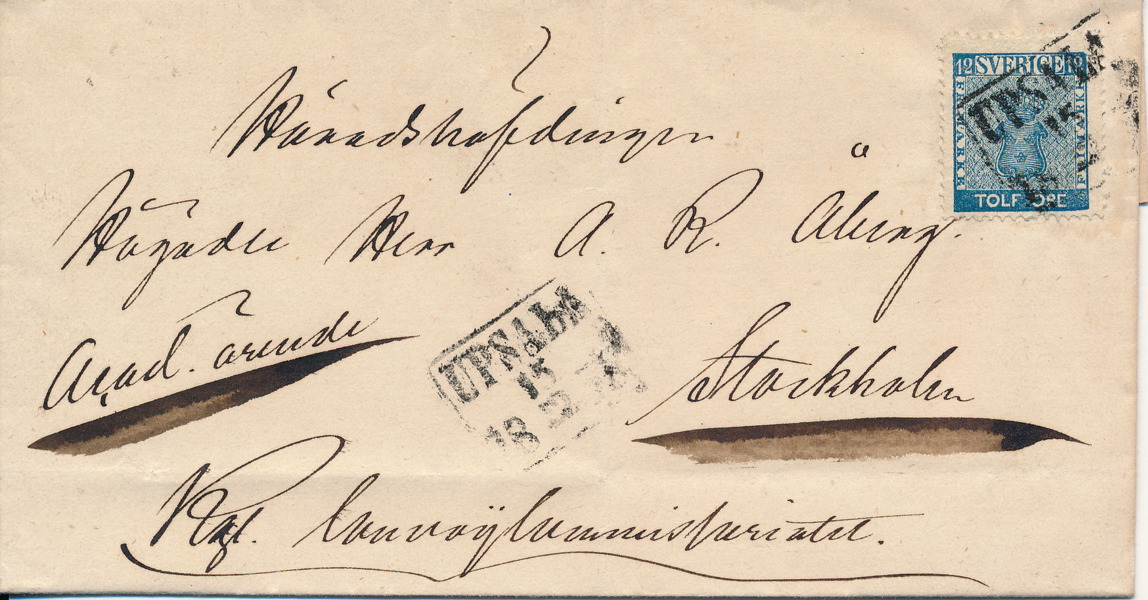 Häradshöfdingen
Högädle Herr A. R. Åberg.
Acad. ärende
Stockholm
Kgl.
12 SVERIGE 12
FRIMÄRKE
FRIMÄRKE
TOLF ÖRE
UPSALA
15
UPSALA
15
18